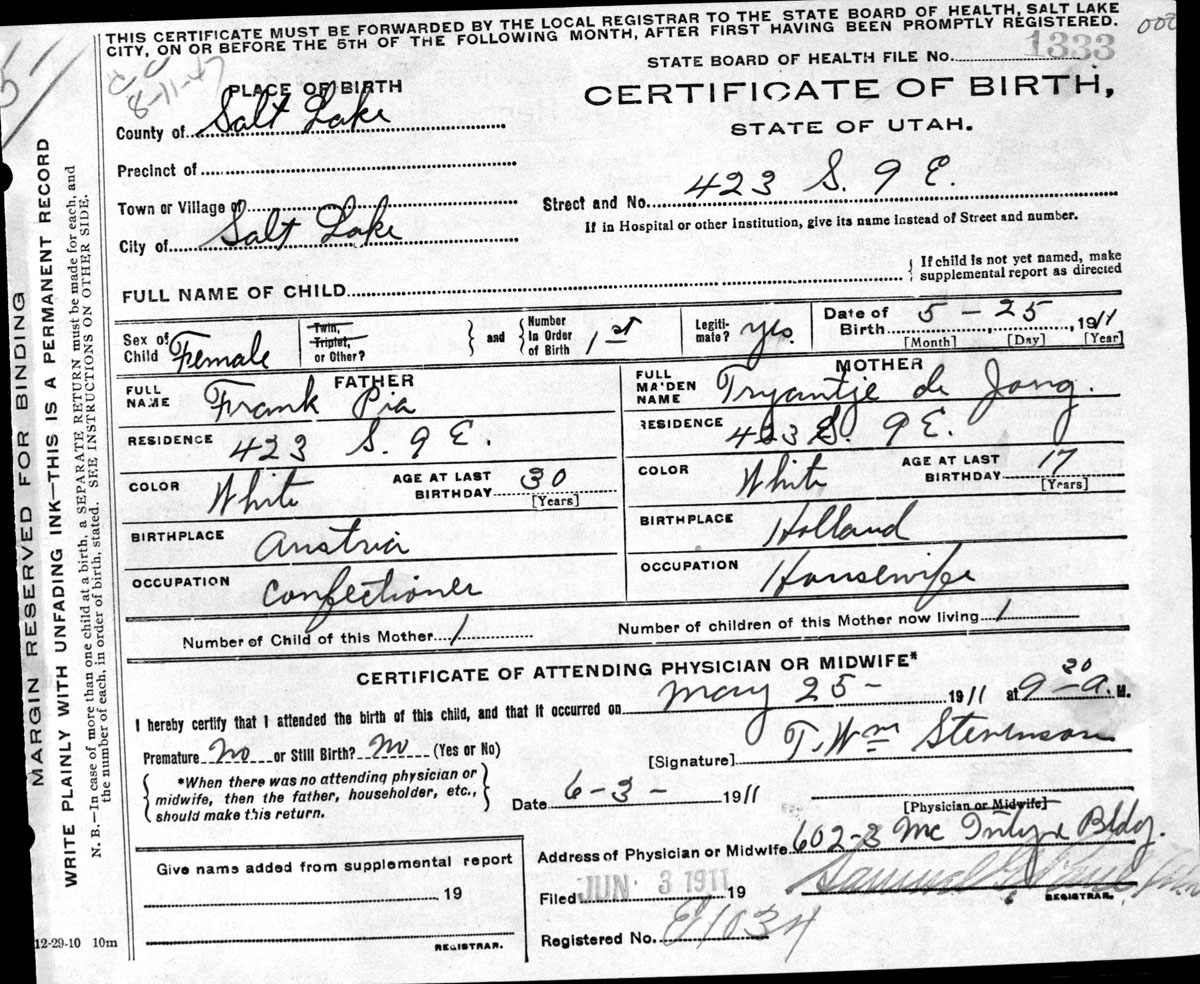 THIS CERTIFICATE MUST BE FORWARDED BY THE LOCAL REGISTRAR TO THE STATE BOARD OF HEALTH, SALT LAKE
CITY, ON OR BEFORE THE 5TH OF THE FOLLOWING MONTH, AFTER FIRST HAVING BEEN PROMPTLY REGISTERED.
STATE BOARD OF HEALTH FILE No. 1333
8-11-47
PLACE OF BIRTH
CERTIFICATE OF BIRTH,
County of Salt Lake
STATE OF UTAH.
Precinct of
Town or Village of
Street and No. 423 S. 9 E.
City of Salt Lake
If in Hospital or other Institution, give its name instead of Street and number.
FULL NAME OF CHILD
If child is not yet named, make
supplemental report as directed
Sex of Child Female
Twin, Triplet, or Other?
and
Number In Order of Birth 1st
Legiti- mate? yes.
Date of Birth 5 - 25, 1911
[Month] [Day] [Year]
FATHER
FULL NAME Frank Pia
RESIDENCE 423 S. 9 E.
COLOR White
AGE AT LAST BIRTHDAY 30
[Years]
BIRTHPLACE Austria
OCCUPATION Confectioner
MOTHER
FULL MAIDEN NAME Tryantje de Jong.
RESIDENCE 423 S. 9 E.
COLOR White
AGE AT LAST BIRTHDAY 17
[Years]
BIRTHPLACE Holland
OCCUPATION Housewife
Number of Child of this Mother 1
Number of children of this Mother now living 1
CERTIFICATE OF ATTENDING PHYSICIAN OR MIDWIFE*
I hereby certify that I attended the birth of this child, and that it occurred on May 25 - 1911 at 9 30 a. M.
Premature No or Still Birth? No (Yes or No)
[Signature] T. Wm Stevenson
*When there was no attending physician or
midwife, then the father, householder, etc.,
should make this return.
Date 6-3- 1911
[Physician or Midwife]
Address of Physician or Midwife 602-3 Mc Intyre Bldg.
Give name added from supplemental report
19
REGISTRAR.
Filed JUN 3 1911 19
REGISTRAR.
Registered No. E1034
12-29-10 10m
MARGIN RESERVED FOR BINDING
WRITE PLAINLY WITH UNFADING INK—THIS IS A PERMANENT RECORD
N. B.—In case of more than one child at a birth, a SEPARATE RETURN must be made for each, and
the number of each, in order of birth, stated. SEE INSTRUCTIONS ON OTHER SIDE.